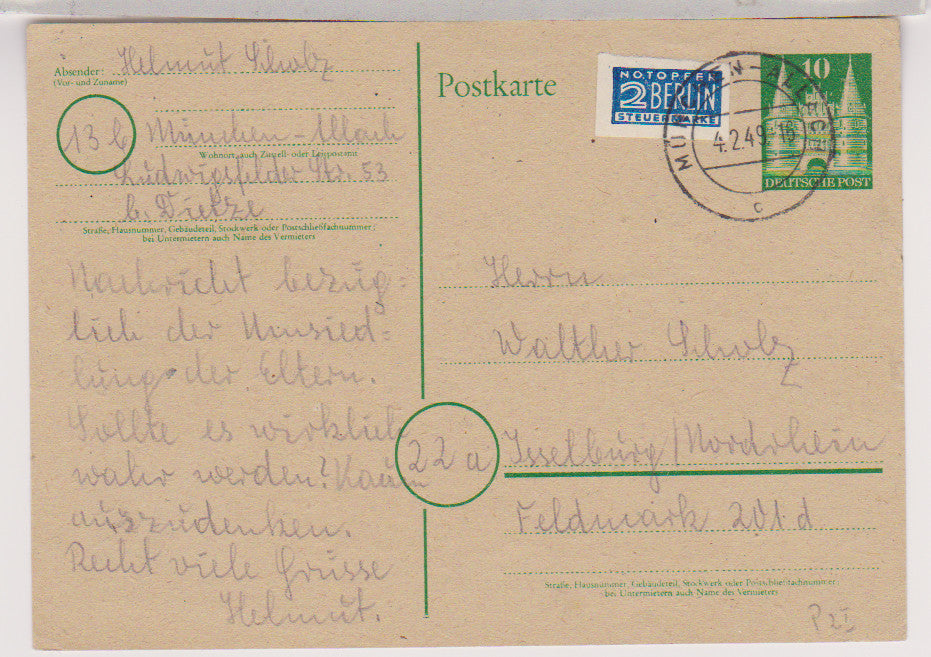 Absender: Helmut Scholz
(Vor- und Zuname)
13 b München-Allach
Wohnort, auch Zustell- oder Leitpostamt
Ludwigsfelder Str. 53
b. Dietze
Straße, Hausnummer, Gebäudeteil, Stockwerk oder Postschließfachnummer;
bei Untermietern auch Name des Vermieters
Nachricht bezüg-
lich der Umsied-
lung der Eltern.
Sollte es wirklich
wahr werden? Kaum
auszudenken.
Recht viele Grüsse
Helmut.
Postkarte
NOTOPFER
2 BERLIN
STEUERMARKE
MÜNCHEN-ALLACH
4.2.49
c
10
DEUTSCHE POST
Herrn
Walther Scholz
22a Isselburg/Nordrhein
Feldmark 201 d
Straße, Hausnummer, Gebäudeteil, Stockwerk oder Postschließfachnummer;
bei Untermietern auch Name des Vermieters
P 2I